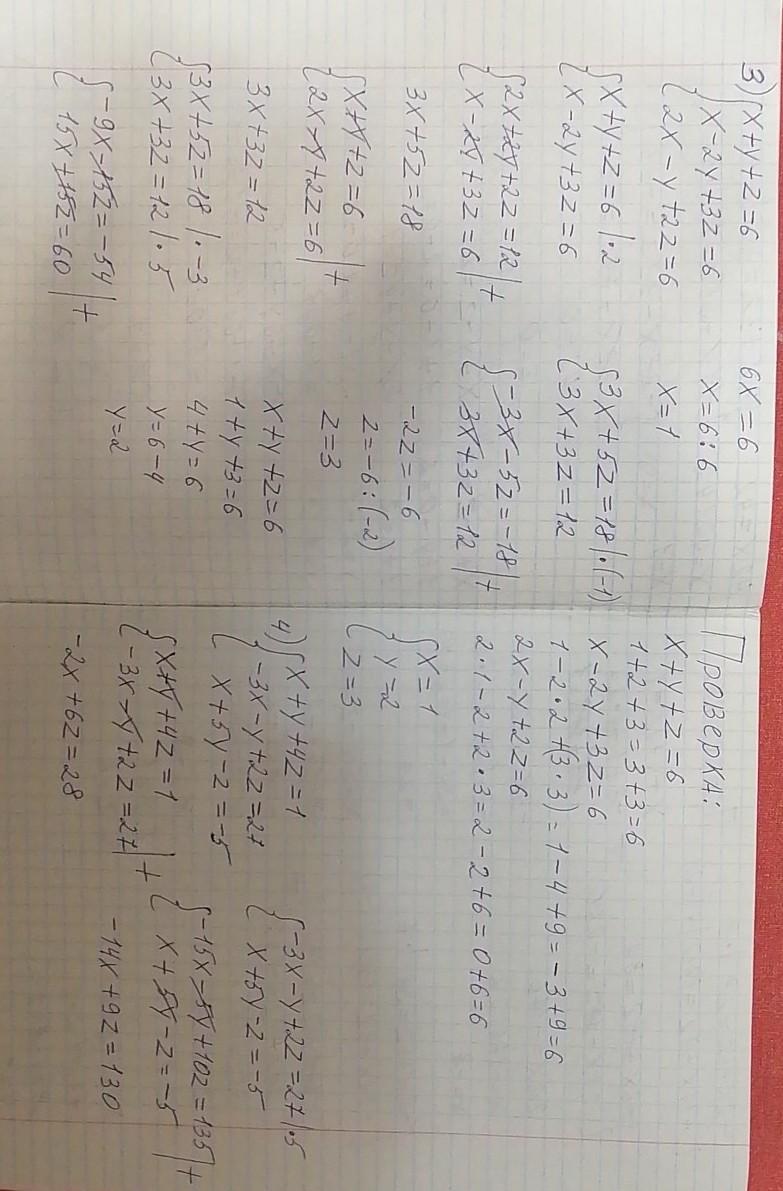 3) { x+y+z=6
x-2y+3z=6
2x-y+2z=6
{ x+y+z=6 |·2
x-2y+3z=6
{ 2x+2y+2z=12
x-2y+3z=6 | +
3x+5z=18
{ x+y+z=6
2x-y+2z=6 | +
3x+3z=12
{ 3x+5z=18 |·-3
3x+3z=12 |·5
{ -9x-15z=-54
15x+15z=60 | +
6x=6
x=6:6
x=1
{ 3x+5z=18 |·(-1)
3x+3z=12
{ -3x-5z=-18
3x+3z=12 | +
-2z=-6
z=-6:(-2)
z=3
x+y+z=6
1+y+3=6
4+y=6
y=6-4
y=2
Проверка:
x+y+z=6
1+2+3=3+3=6
x-2y+3z=6
1-2·2+(3·3)=1-4+9=-3+9=6
2x-y+2z=6
2·1-2+2·3=2-2+6=0+6=6
{ x=1
y=2
z=3
4) { x+y+4z=1
-3x-y+2z=27
x+5y-z=-5
{ x+y+4z=1
-3x-y+2z=27 | +
-2x+6z=28
{ -3x-y+2z=27 |·5
x+5y-z=-5
{ -15x-5y+10z=135
x+5y-z=-5 | +
-14x+9z=130